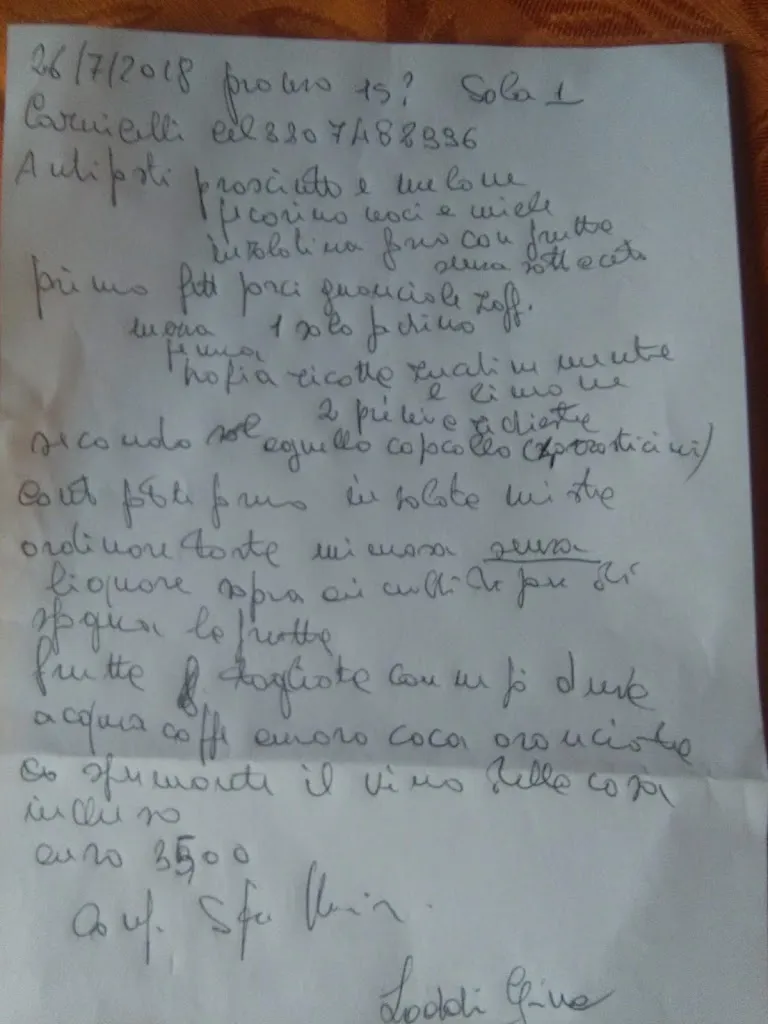 26/7/2018 pranzo 15? Sala 1
Carnicelli cel 330 7488996
Antipasti prosciutto e melone
pecorino noci e miele
insalatina farro con frutta
senza sott aceto
primo fett porci guanciale zaff.
1 solo primo
ricotta zucchine menta
e limone
2 
secondo agnello capocollo (arrosticini)
cont patate forno insalata mista
ordinare torta mimosa senza
liquore sopra cubetti di pan di
spagna la frutta
frutta tagliata con un pò d uva
acqua caffè amaro coca aranciata
spumante il vino della casa
incluso
euro 3500
conf.
Loddi Gina